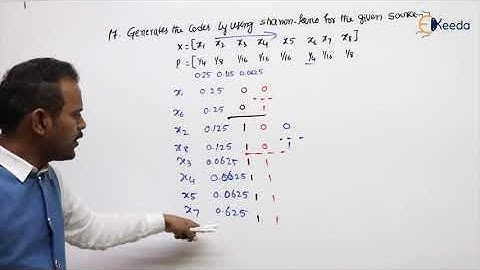 17. Generates the Codes by using Shannon-fano for the given source
Ekeeda
X = [x1 x2 x3 x4 x5 x6 x7 x8]
P = [1/4 1/8 1/16 1/16 1/16 1/4 1/16 1/8]
0.25 0.125 0.0625
x1 0.25 0 0
x6 0.25 0 1
x2 0.125 1 0 0
x8 0.125 1 0 1
x3 0.0625 1 1
x4 0.0625 1 1
x5 0.0625 1 1
x7 0.625 1 1